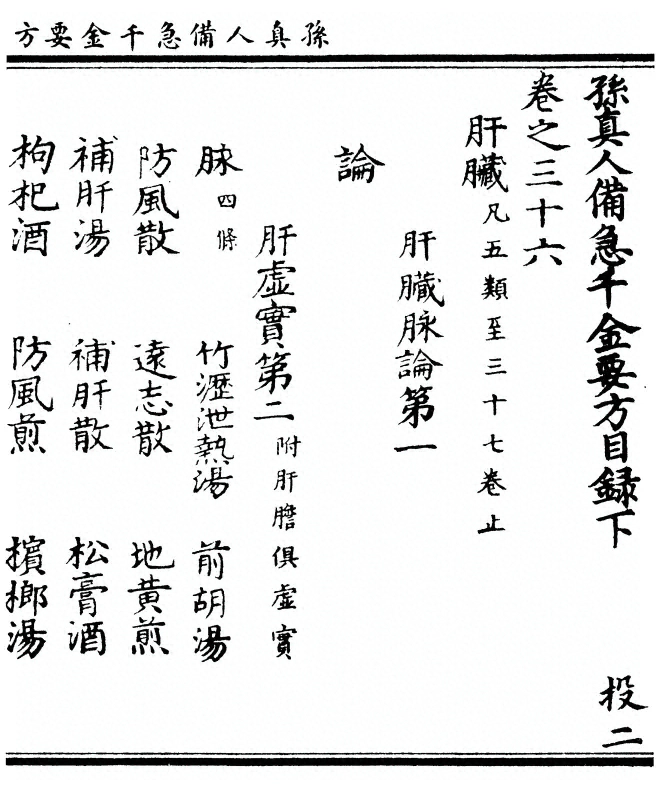 孫真人備急千金要方
孫真人備急千金要方目錄下 投二
卷之三十六
肝臟凡五類至三十七卷止
肝臟脉論第一
論
肝虛實第二附肝膽俱虛實
脉四條 竹瀝泄熱湯 前胡湯
防風散 遠志散 地黄煎
補肝湯 補肝散 松膏酒
枸杞酒 防風煎 檳榔湯